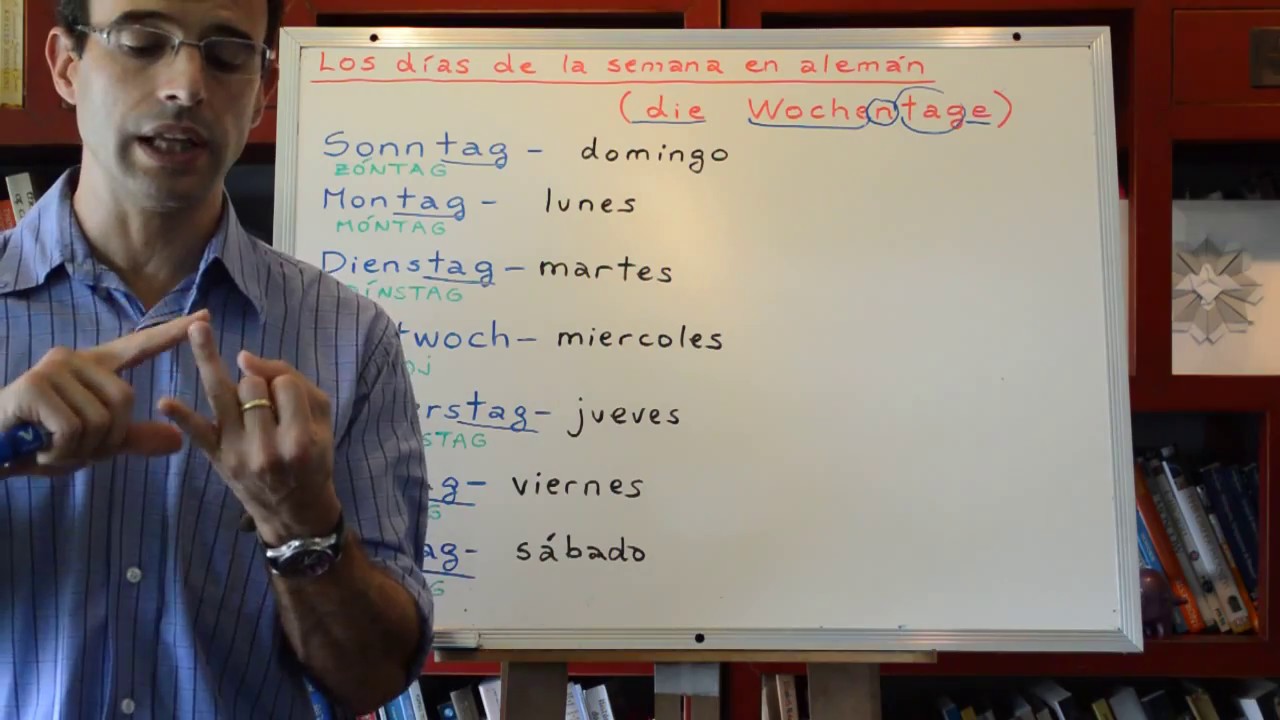 Los días de la semana en alemán
(die Wochentage)
Sonntag - domingo
ZÓNTAG
Montag - lunes
MÓNTAG
Dienstag - martes
ÍNSTAG
twoch - miercoles
OJ
rstag - jueves
STAG
g - viernes
G
ag - sábado
G